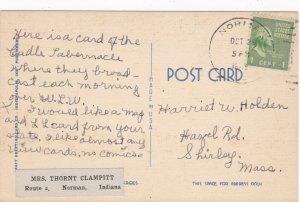 Here is a card of the
Cadle Tabernacle
where they broad-
cast each morning
over W.L.W.
I would like a map
and L L card from your
state, & like almost any
view cards, no comics
MRS. THORNT CLAMPITT
Route 2, Norman, Indiana
MADE U.S.A.
POST CARD
NORM
OCT
1 CENT 1
Harriet W. Holden
Hazel Rd.
Shirley,
Mass.
THIS SPACE FOR ADDRESS ONLY